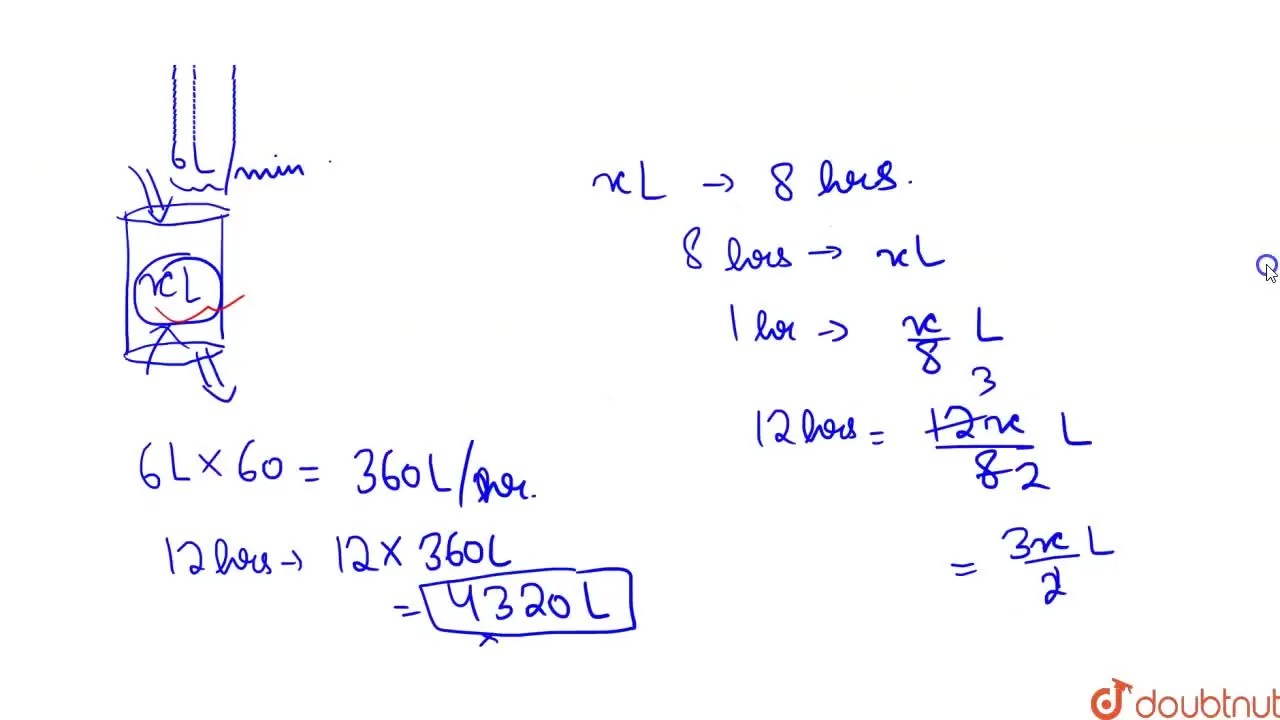 6L/min
xL
6L × 60 = 360L/hr.
12hrs → 12 × 360L
= 4320L
xL → 8 hrs.
8 hrs → xL
1 hr → x/8 L
3
12hrs = 12x/8 L
2
= 3x/2 L
doubtnut